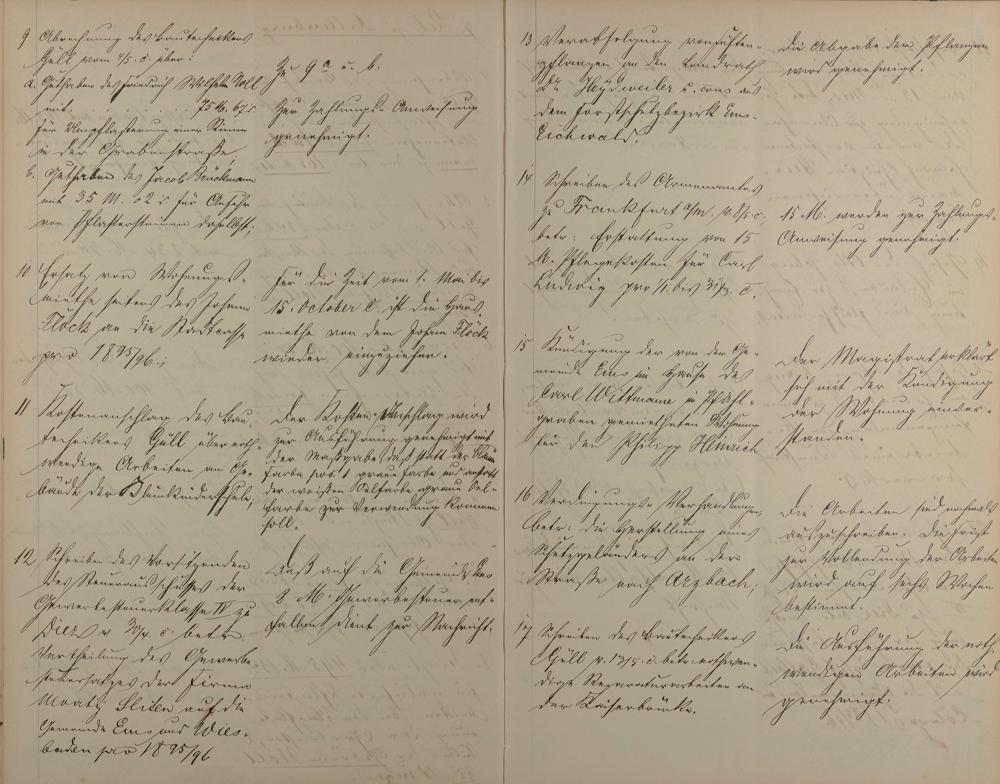 9 Abrechnung des Bautechnikers
Güll vom 4/5. c. über:
a. Guthaben des Friedrich Wilhelm Noll
mit 75 M. 67 .
für Umpflasterung einer Rinne
in der Grabenstraße,
b. Guthaben des Jacob Brückmann
mit 35 M. 02 . für Anfuhr
von Pflastersteinen daselbst;
Zu 9 a u. b.
Zur Zahlungs-Anweisung
genehmigt.
10 Ersatz von Wohnungs-
miethe seitens des Johann
Flöck an die Stadtcasse
pro 1895/96.;
Für die Zeit vom 1. Mai bis
15. October c. ist die Haus-
miethe von dem Johann Flöck
wieder einzuziehen.
11 Kostenanschlag des Bau-
technikers Güll über noth-
wendige Arbeiten am Ge-
bäude der Kleinkinderschule;
Der Kosten-Anschlag wird
zur Ausführung genehmigt mit
der Maßgabe, daß statt der
farbe pos. 1 graue Farbe und anstatt
der weißen Oelfarbe graue Oel-
farbe zur Verwendung kommen
soll.
12 Schreiben des Vorsitzenden
des Steuerausschusses der
Gewerbesteuerklasse IV zu
Diez v. 30/4. c. betr.
Vertheilung des Gewerbe-
steuersatzes der Firma
Moatz auf die
Gemeinde Ems und Wies-
baden pro 1895/96
Daß auf die Gemeinde Ems
8 M. Gewerbesteuer ent-
fallen, dient zur Nachricht.
13 Verabfolgung von
pflanzen an den Landrath
Dr. Heydweiler u. aus
dem Forstschutzbezirk Ems-
Eichwald.
Die Abgabe der Pflanzen
wird genehmigt.
14 Schreiben des Armenamtes
zu Frankfurt a/m. v. 8/5. c.,
betr. Erstattung von 15
M. Pflegekosten für Carl
Ludwig pro 1/1. bis 31/3. c.
15 M. werden zur Zahlungs-
Anweisung genehmigt.
15 Kündigung der von der Ge-
meinde Ems im Hause des
Carl Wittmann in Pfahl-
graben gemietheten Wohnung
für den Philipp Heinrich
Der Magistrat erklärt
sich mit der Kündigung
der Wohnung einver-
standen.
16 Verdingungs-Verhandlung
betr. die Herstellung eines
Schutzgeländers an der
Straße nach Arzbach;
Die Arbeiten sind nochmals
auszuschreiben. Die Frist
zur Vollendung der Arbeiten
wird auf sechs Wochen
bestimmt.
17 Schreiben des Bautechnikers
Güll v. 13/5. c. betr. nothwen-
dige Reparaturarbeiten an
der Kaiserbrücke.
Die Ausführung der noth-
wendigen Arbeiten wird
genehmigt.